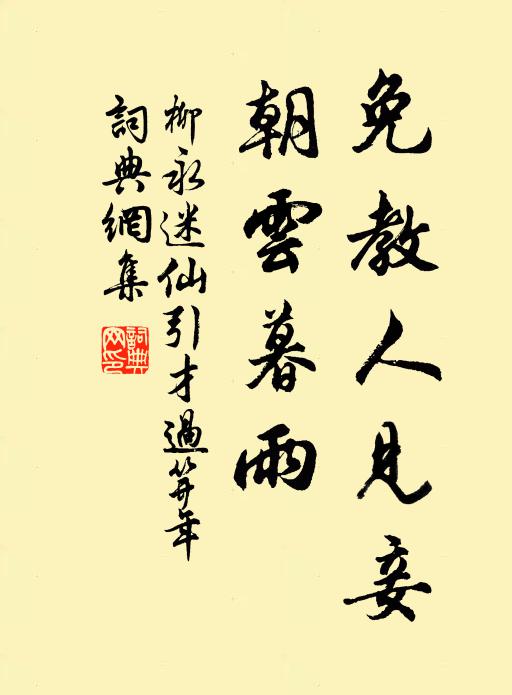 免教人見妾
朝雲暮雨
柳永迷仙引才過笄年
詞典網集
詞典網印